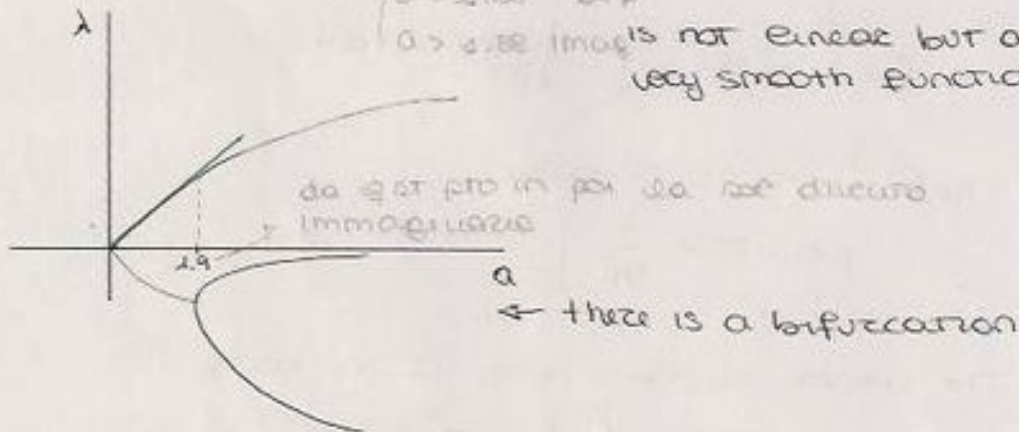 λ
a > 1.88 imag
is not linear but a
very smooth functio
da qst pto in poi la sol diventa
immaginaria
1.9
a
← there is a bifurcation